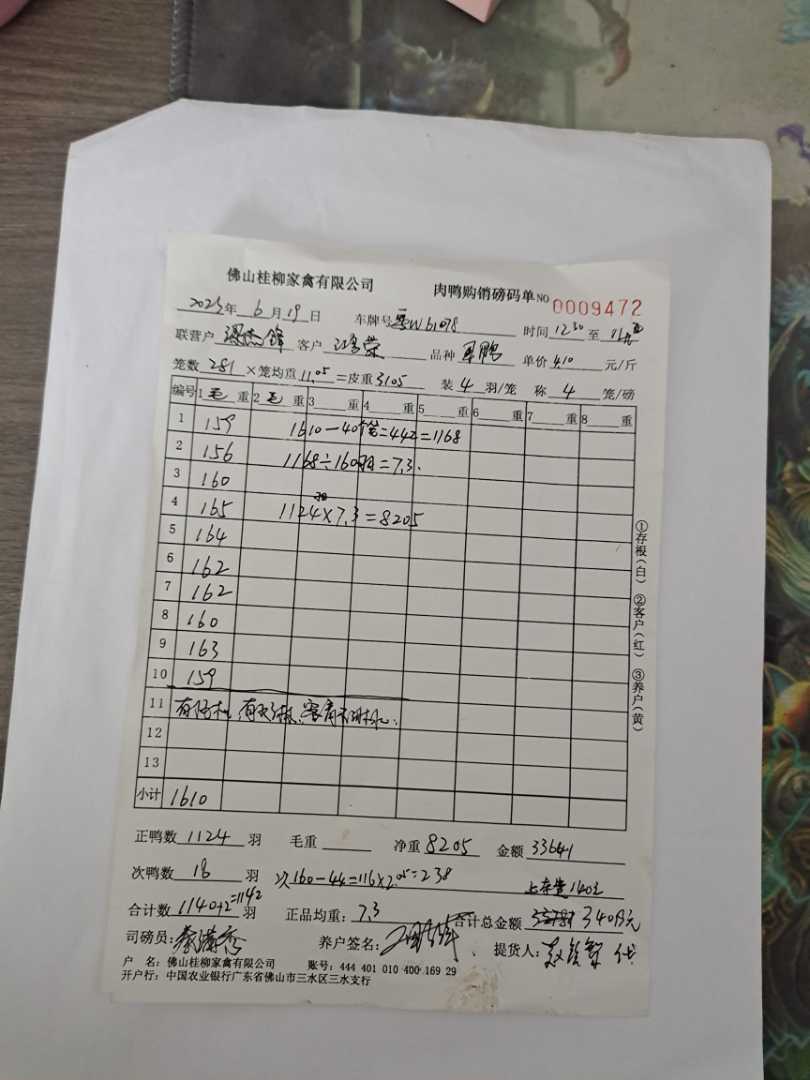 佛山桂柳家禽有限公司 肉鸭购销磅码单 NO 0009472
2023年 6月19日 车牌号 粤W61078 时间 12:30 至
联营户 客户 品种 单价 4.10 元/斤
笼数 281 ×笼均重 11.05 =皮重 3105 装 4 羽/笼 称 4 笼/磅
编号 1 毛 重 2 毛 重 3 重 4 重 5 重 6 重 7 重 8 重
1 159 1610-40笼=442=1168
2 156 1168÷160羽=7.3.
3 160
4 165 1124羽×7.3=8205
5 164
6 162
7 162
8 160
9 163
10 159
11
12
13
小计 1610
①存根(白) ②客户(红) ③养户(黄)
正鸭数 1124 羽 毛重 净重 8205 金额 33641
次鸭数 18 羽 次160-44=116×2.05=238
合计数 1140+2=1142 羽 正品均重: 7.3 合计总金额 34019元
司磅员: 养户签名: 提货人: 代
户 名: 佛山桂柳家禽有限公司 账号: 444 401 010 400 169 29
开户行: 中国农业银行广东省佛山市三水区三水支行